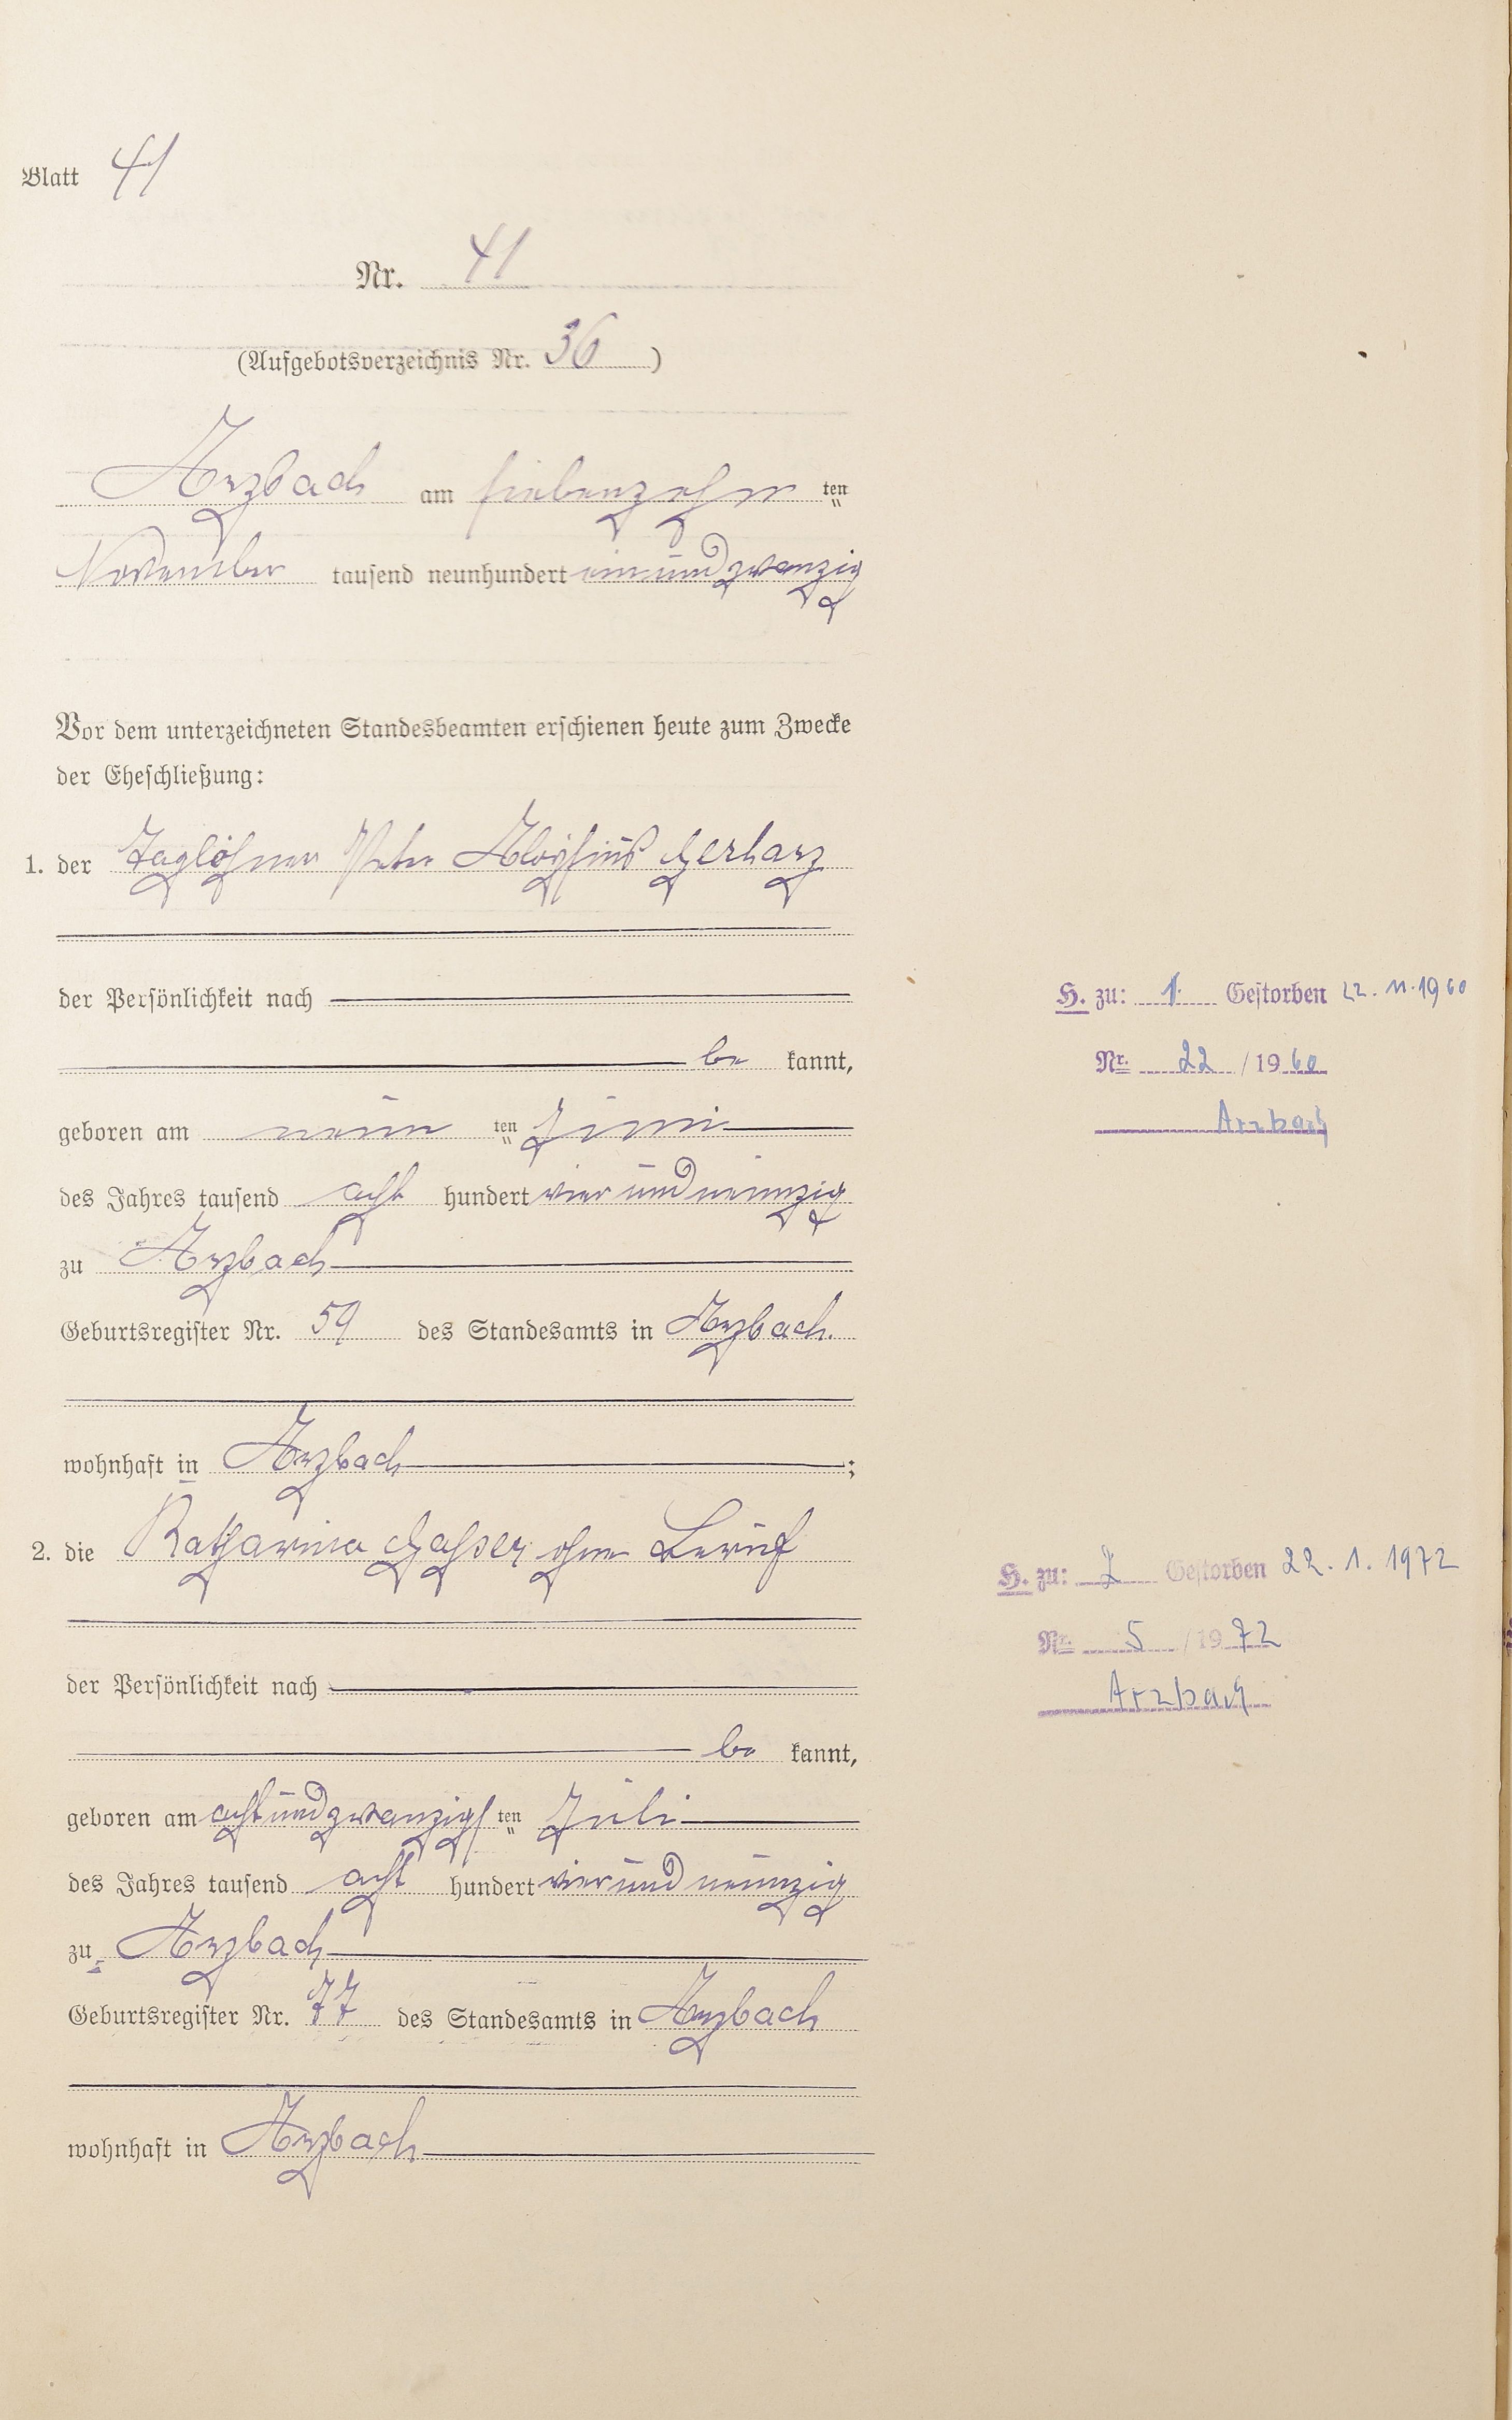 Blatt 41
Nr. 41
(Aufgebotsverzeichnis Nr. 36)
Arzbach am siebenzehn ten
November tausend neunhundert einundzwanzig
Vor dem unterzeichneten Standesbeamten erschienen heute zum Zwecke
der Eheschließung:
1. der Taglöhner Peter Aloysius Gerharz
der Persönlichkeit nach
be kannt,
geboren am neun ten Juni
des Jahres tausend acht hundert vierundneunzig
zu Arzbach
Geburtsregister Nr. 59 des Standesamts in Arzbach.
wohnhaft in Arzbach ;
2. die Katharina ohne Beruf
der Persönlichkeit nach
be kannt,
geboren am achtundzwanzigs ten Juli
des Jahres tausend acht hundert vierundneunzig
zu Arzbach
Geburtsregister Nr. 77 des Standesamts in Arzbach
wohnhaft in Arzbach
H. zu: 1. Gestorben 22.11.1960
Nr. 22 / 1960
Arzbach
H. zu: 2 Gestorben 22.1.1972
Nr. 5 / 1972
Arzbach